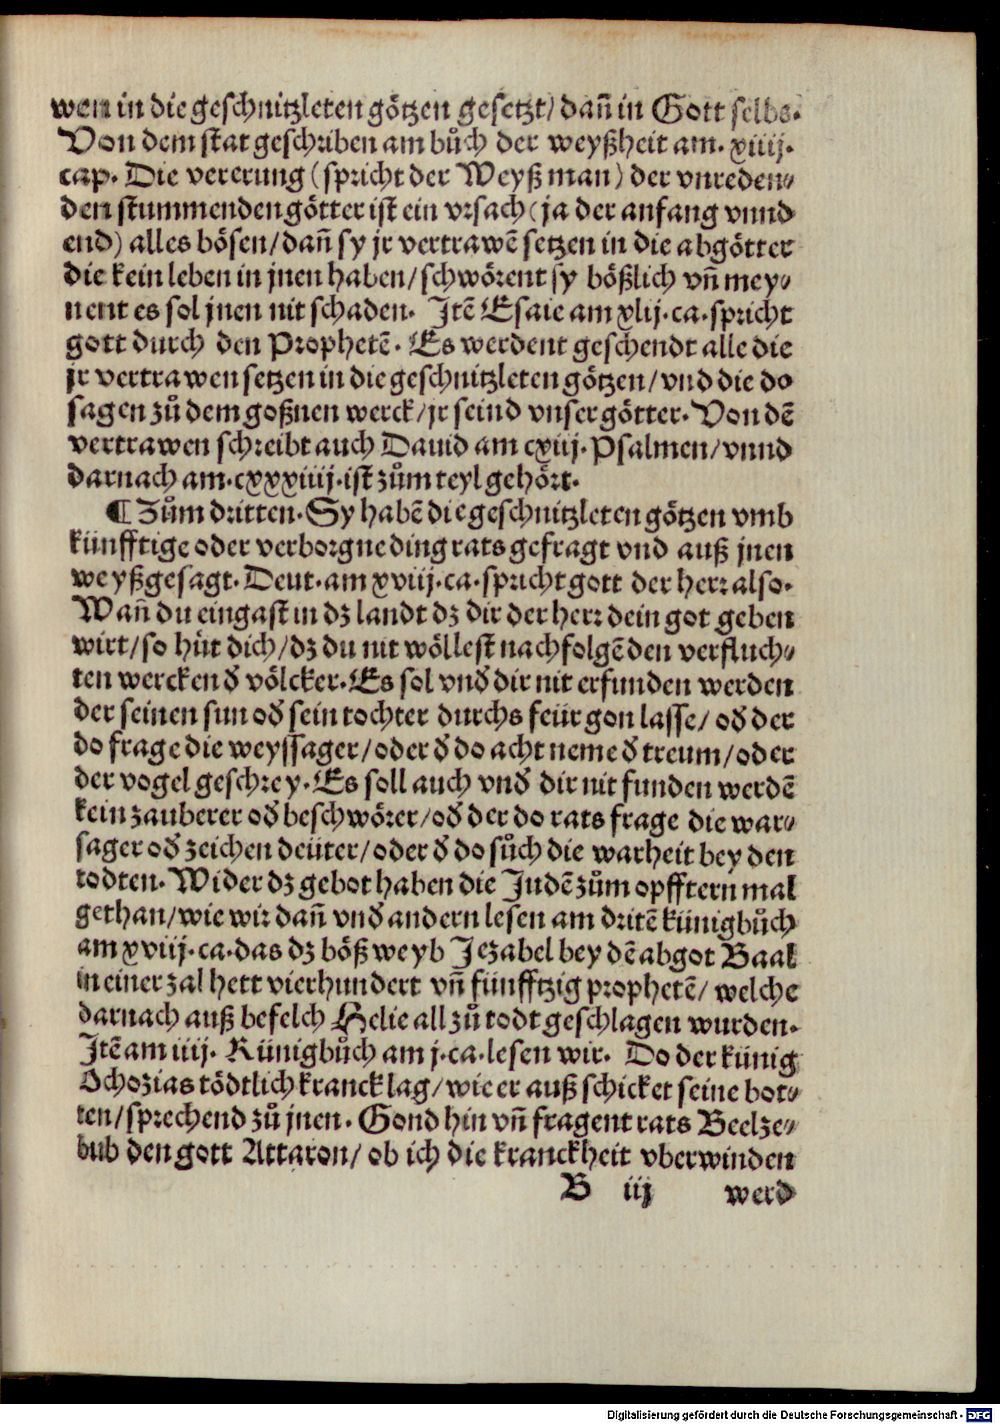 wen in die geschnitzleten götzen gesetzt/ dañ in Gott selbs.
Von dem stat geschriben am bůch der weyßheit am. xiiij.
cap. Die vererung (spricht der Weyß man) der vnreden⸗
den stummenden götter ist ein vrsach (ja der anfang vnnd
end) alles bösen/ dañ sy jr vertrawē setzen in die abgötter
die kein leben in jnen haben/ schwörent sy bößlich vñ mey⸗
nent es sol jnen nit schaden. Jtē Esaie am xlij. ca. spricht
gott durch den Prophetē. Es werdent geschendt alle die
jr vertrawen setzen in die geschnitzleten götzen/ vnd die do
sagen zů dem goßnen werck/ jr seind vnser götter. Von dē
vertrawen schreibt auch Dauid am cxiij. Psalmen/ vnnd
darnach am. cxxxiiij. ist zům teyl gehört.
¶ Zům dritten. Sy habē die geschnitzleten götzen vmb
künfftige oder verborgne ding rats gefragt vnd auß jnen
weyßgesagt. Deut. am xviij. ca. spricht gott der herr also.
Wañ du eingast in dz landt dz dir der herr dein got geben
wirt/ so hüt dich/ dz du nit wöllest nachfolgē den verfluch⸗
ten wercken đ völcker. Es sol vnđ dir nit erfunden werden
der seinen sun ođ sein tochter durchs feür gon lasse/ ođ der
do frage die weyssager/ oder đ do acht neme đ treum/ oder
der vogel geschrey. Es soll auch vnđ dir nit funden werdē
kein zauberer ođ beschwörer/ ođ der do rats frage die war⸗
sager ođ zeichen deüter/ oder đ do sůch die warheit bey den
todten. Wider dz gebot haben die Judē zům opfftern mal
gethan/ wie wir dañ vnđ andern lesen am dritē künigbůch
am xviij. ca. das dz böß weyb Jezabel bey dē abgot Baal
in einer zal hett vierhundert vñ fünfftzig prophetē/ welche
darnach auß befelch Helie all zů todt geschlagen wurden.
Jtē am iiij. Künigbůch am j. ca. lesen wir. Do der künig
Ochozias tödtlich kranck lag/ wie er auß schicket seine bot⸗
ten/ sprechend zů jnen. Gond hin vñ fragent rats Beelze⸗
bub den gott Attaron/ ob ich die kranckheit vberwinden
B iij werd
Digitalisierung gefördert durch die Deutsche Forschungsgemeinschaft - DFG